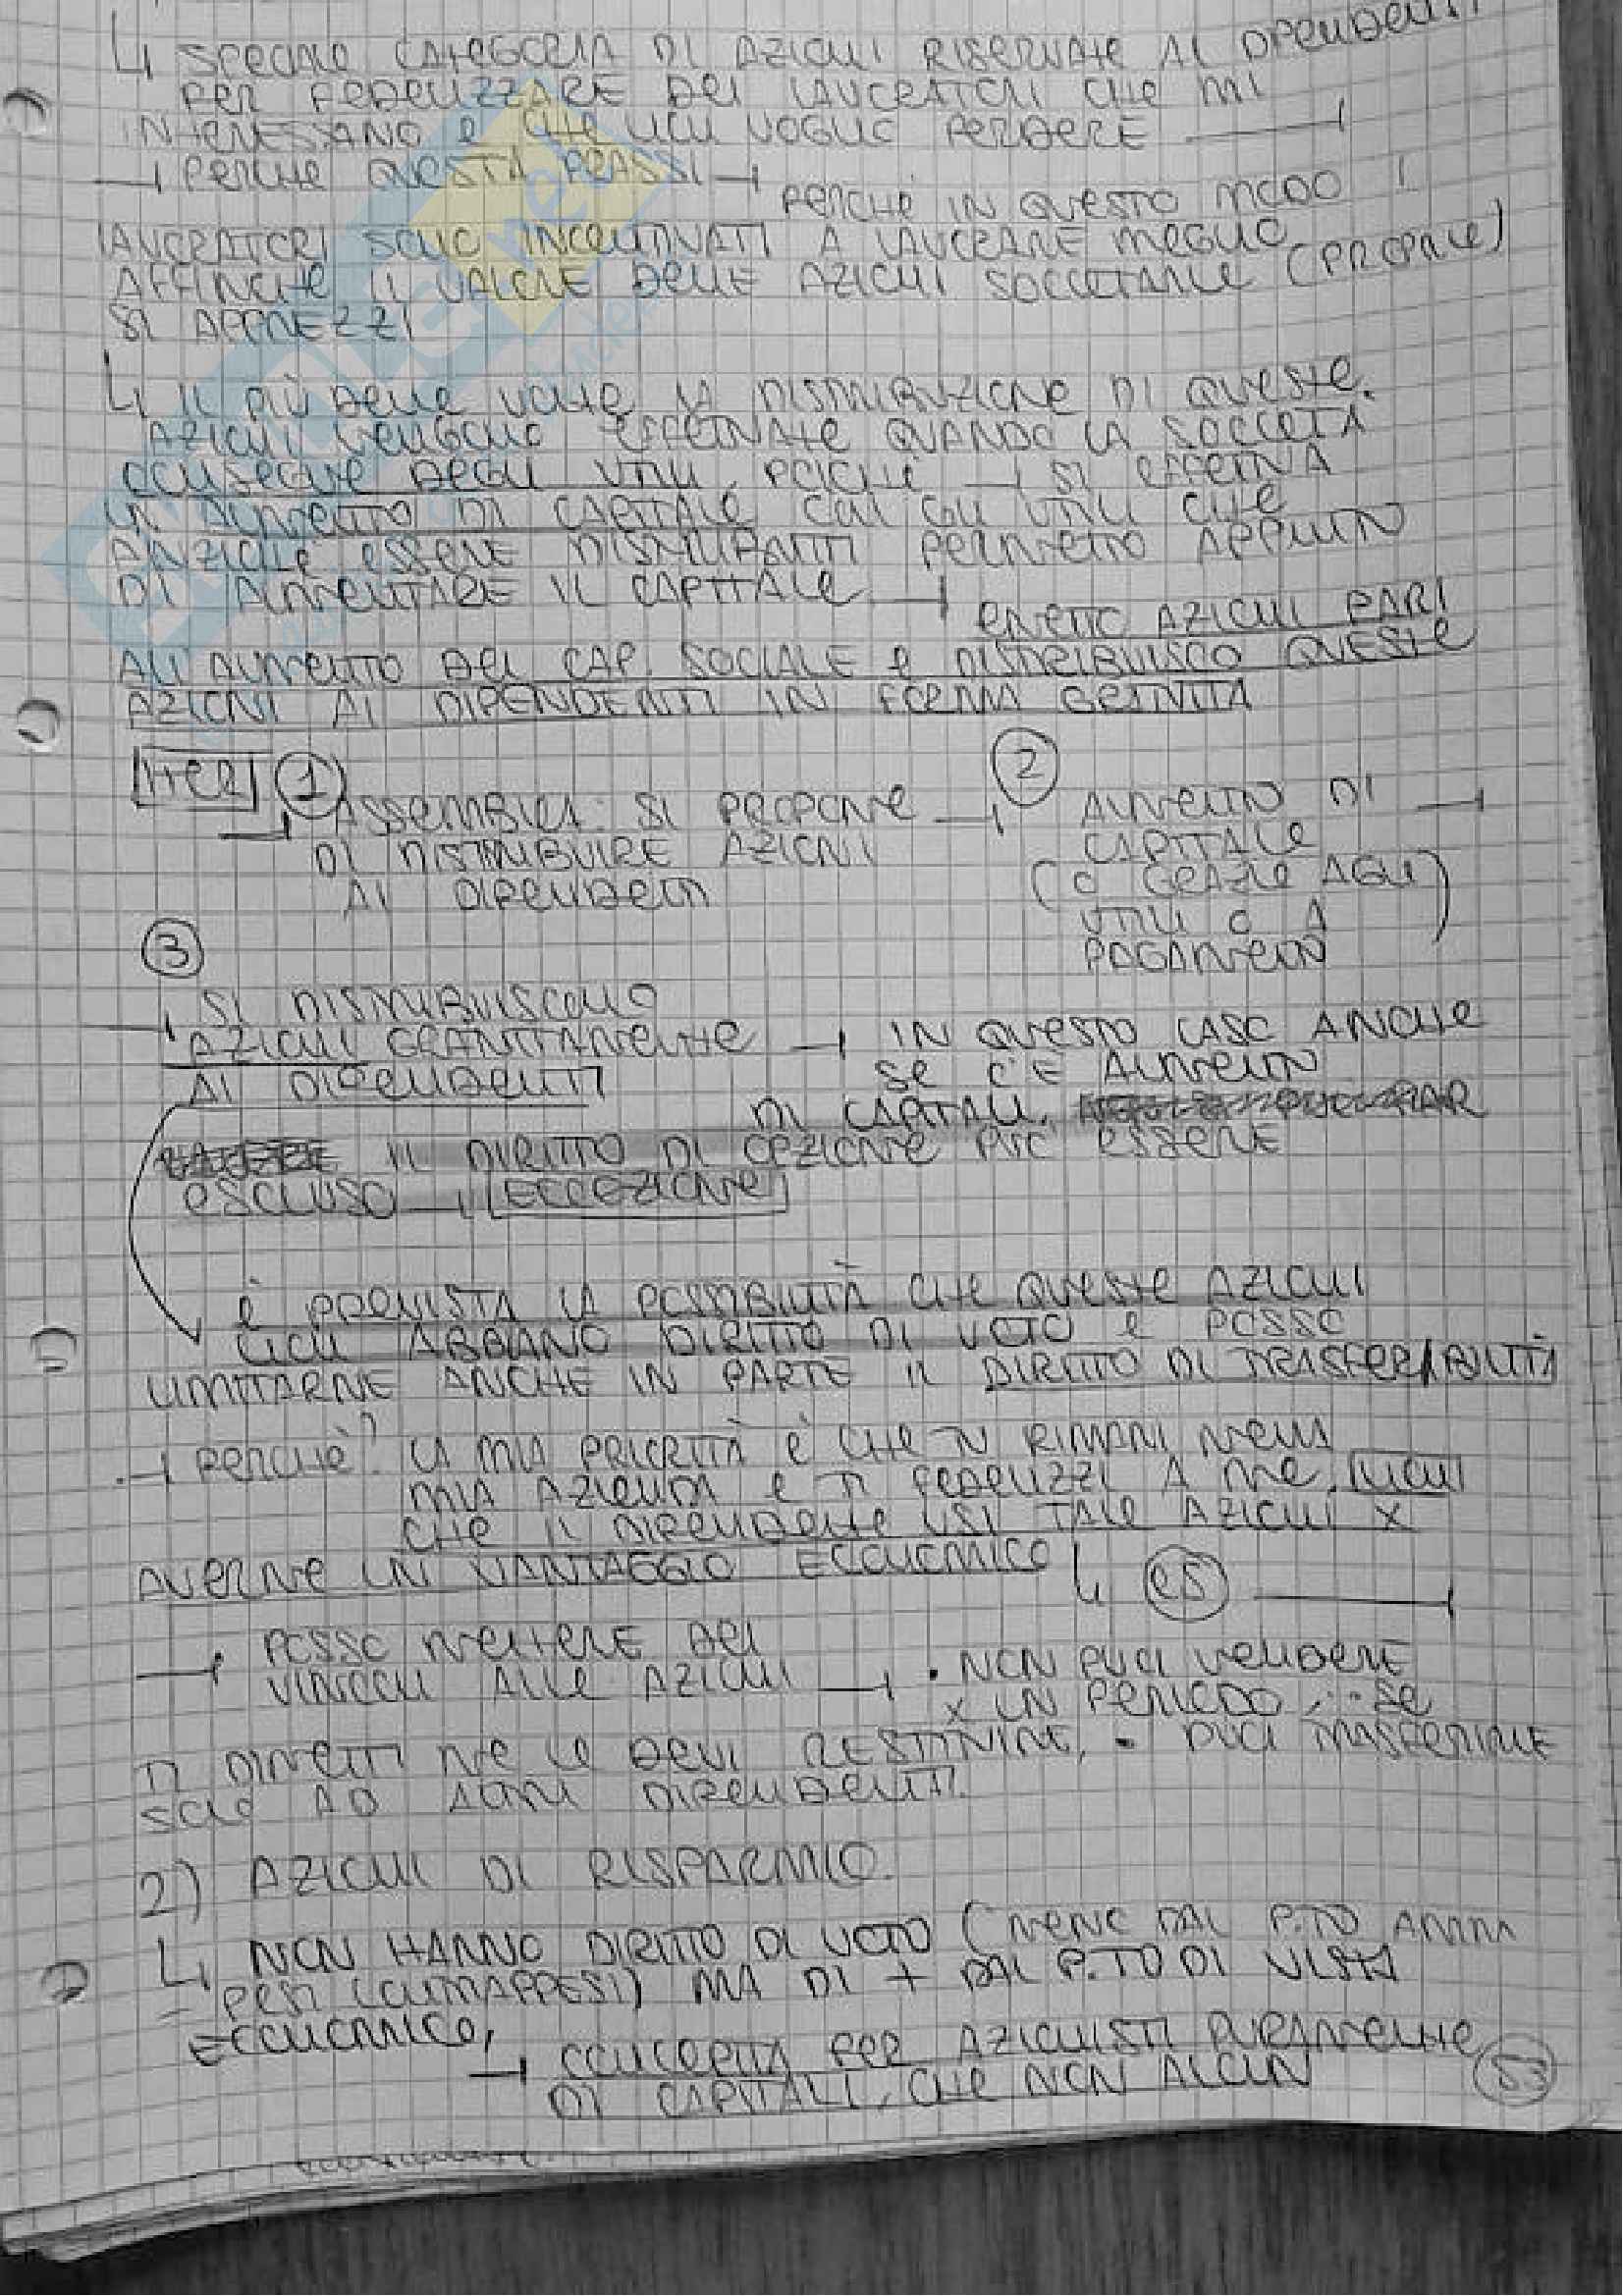 ↳ SPECIALE CATEGORIA DI AZIONI RISERVATE AI DIPENDENTI
PER FEDELIZZARE DEI LAVORATORI CHE MI
INTERESSANO E CHE NON VOGLIO PERDERE →
→ PERCHÉ QUESTA PRASSI →
PERCHÉ IN QUESTO MODO I
LAVORATORI SONO INCENTIVATI A LAVORARE MEGLIO
AFFINCHÉ IL VALORE DELLE AZIONI SOCIETARIE (PROPRIE)
SI APPREZZI
↳ IL PIÙ DELLE VOLTE LA DISTRIBUZIONE DI QUESTE
AZIONI VENGONO EFFETTUATE QUANDO LA SOCIETÀ
CONSEGUE DEGLI UTILI, POICHÉ → SI EFFETTUA
UN AUMENTO DI CAPITALE CON GLI UTILI CHE
ANZICHÉ ESSERE DISTRIBUITI PERMETTO APPUNTO
DI AUMENTARE IL CAPITALE →
EMETTO AZIONI PARI
ALL'AUMENTO DEL CAP. SOCIALE E DISTRIBUISCO QUESTE
AZIONI AI DIPENDENTI IN FORMA GRATUITA
ITER ① ②
→ ASSEMBLEA: SI PROPONE → AUMENTO DI →
DI DISTRIBUIRE AZIONI CAPITALE
AI DIPENDENTI (O GRAZIE AGLI
UTILI O A
PAGAMENTO)
③
→ SI DISTRIBUISCONO
AZIONI GRATUITAMENTE → IN QUESTO CASO ANCHE
AI DIPENDENTI SE C'È AUMENTO
DI CAPITALI,
IL DIRITTO DI OPZIONE PUÒ ESSERE
ESCLUSO → ECCEZIONE
È PREVISTA LA POSSIBILITÀ CHE QUESTE AZIONI
NON ABBIANO DIRITTO DI VOTO E POSSO
LIMITARNE ANCHE IN PARTE IL DIRITTO DI TRASFERIBILITÀ
→ PERCHÈ? LA MIA PRIORITÀ È CHE TU RIMANI NELLA
MIA AZIENDA E TI FEDELIZZI A ME,
CHE IL DIPENDENTE USI TALE AZIONI X
AVERNE UN VANTAGGIO ECONOMICO ↳ ES →
→ POSSO METTERE DEI
VINCOLI ALLE AZIONI → • NON PUOI VENDERE
X UN PERIODO, • SE
TI DIMETTI ME LE DEVI RESTITUIRE, • PUOI TRASFERIRLE
SOLO AD ALTRI DIPENDENTI.
2) AZIONI DI RISPARMIO.
↳ NON HANNO DIRITTO DI VOTO (MENO DAL P.TO AMM
PESI CONTRAPPESI) MA DI + DAL P.TO DI VISTA
ECONOMICO,
→ CONCEPITA PER AZIONISTI PURAMENTE
DI CAPITALI, CHE NON ALCUN
53